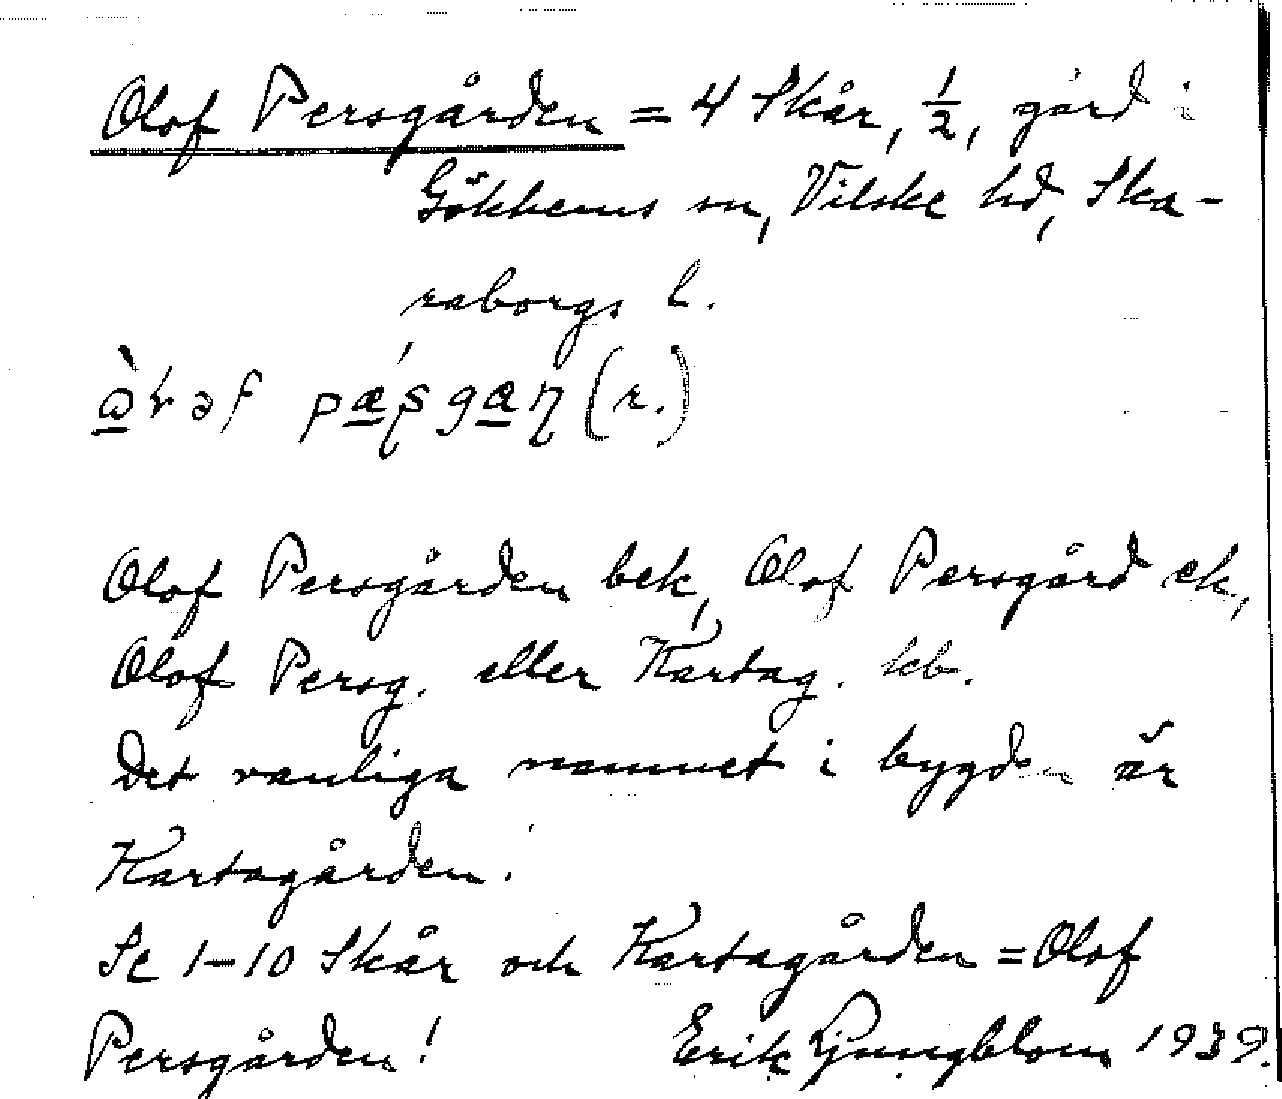 Olof Persgården = 4 Skår, 1/2, gård i
Gökhems sn, Vilske hd, Ska-
raborgs l.
(r.)
Olof Persgården bek, Olof Persgård ek,
Olof Persg. eller Kartag. kb.
Det vanliga namnet i bygden är
Kartagården.
Se 1-10 Skår och Kartagården = Olof
Persgården! Erik Ljungblom 1939.